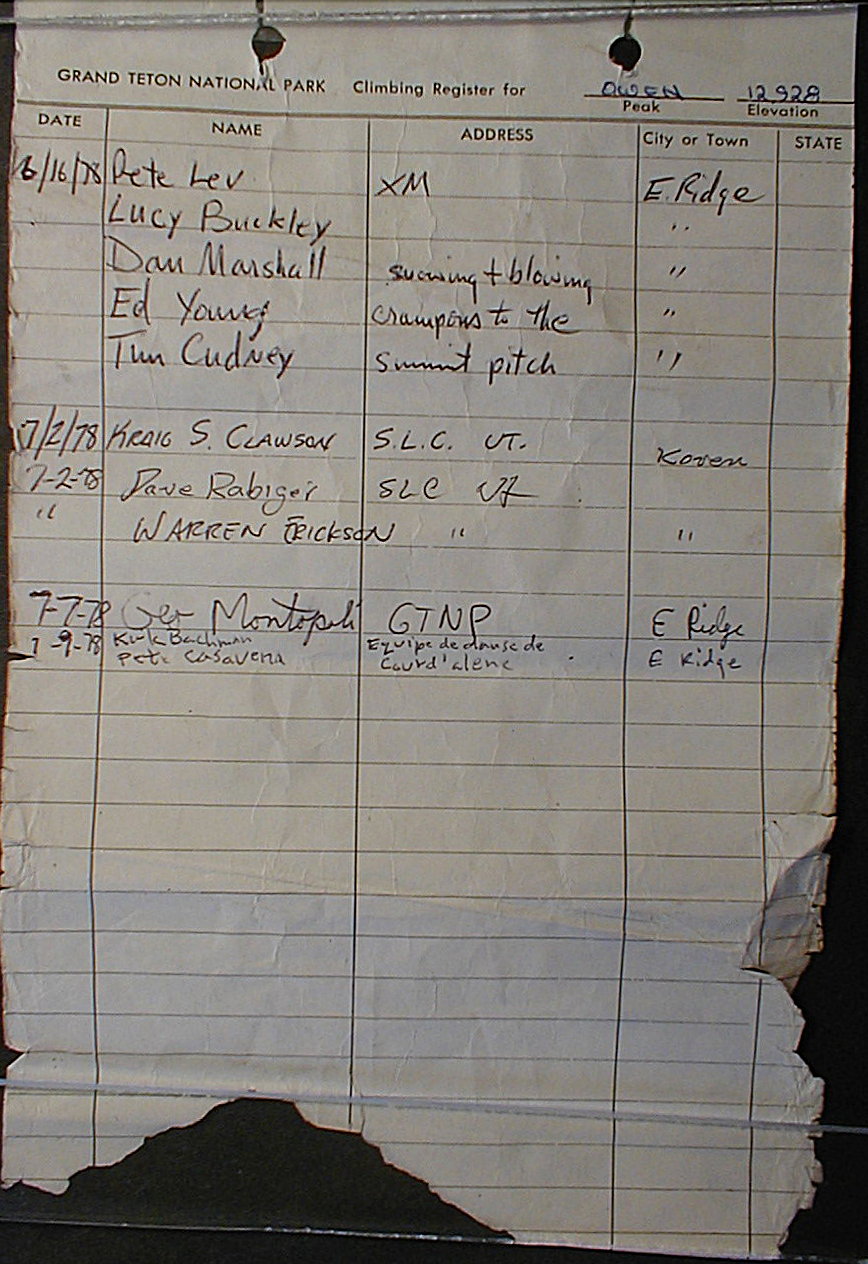 GRAND TETON NATIONAL PARK Climbing Register for OWEN 12928
Peak Elevation
DATE NAME ADDRESS City or Town STATE
6/16/78 Pete Lev XM E. Ridge
Lucy Buckley "
Dan Marshall snowing + blowing "
Ed Young crampons to the "
Tim Cudney summit pitch "
7/2/78 KRAIG S. CLAWSON S.L.C. UT. Koven
7-2-78 Dave Rabiger SLC UT
" WARREN ERICKSON " "
7-7-78 Geo Montopoli GTNP E Ridge
7-9-78 Kirk Bachman Equipe de danse de
Pete Casavena Courd'alene E Ridge